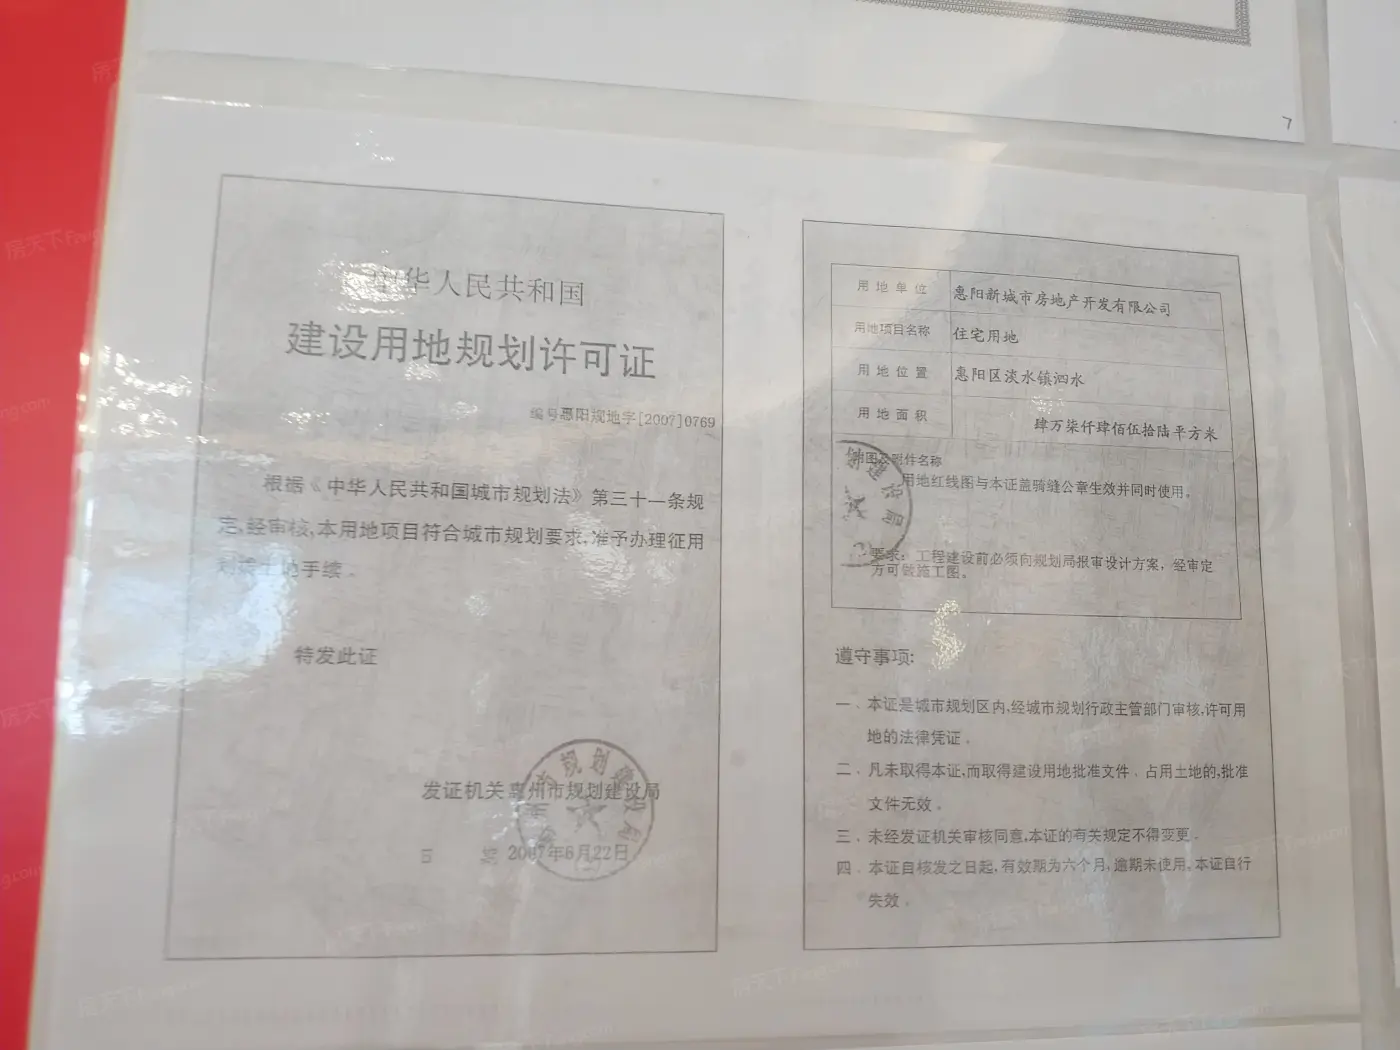 7
中华人民共和国
建设用地规划许可证
编号惠阳规地字[2007]0769
根据《中华人民共和国城市规划法》第三十一条规
定,经审核,本用地项目符合城市规划要求,准予办理征用
划拨土地手续。
特发此证
发证机关惠州市规划建设局
日 期 2007年6月22日
用地单位 惠阳新城市房地产开发有限公司
用地项目名称 住宅用地
用地位置 惠阳区淡水镇泗水
用地面积 肆万柒仟肆佰伍拾陆平方米
附图及附件名称
用地红线图与本证盖骑缝公章生效并同时使用。
要求：工程建设前必须向规划局报审设计方案，经审定
方可做施工图。
遵守事项:
一、本证是城市规划区内,经城市规划行政主管部门审核,许可用
地的法律凭证。
二、凡未取得本证,而取得建设用地批准文件、占用土地的,批准
文件无效。
三、未经发证机关审核同意,本证的有关规定不得变更。
四、本证自核发之日起,有效期为六个月,逾期未使用,本证自行
失效。